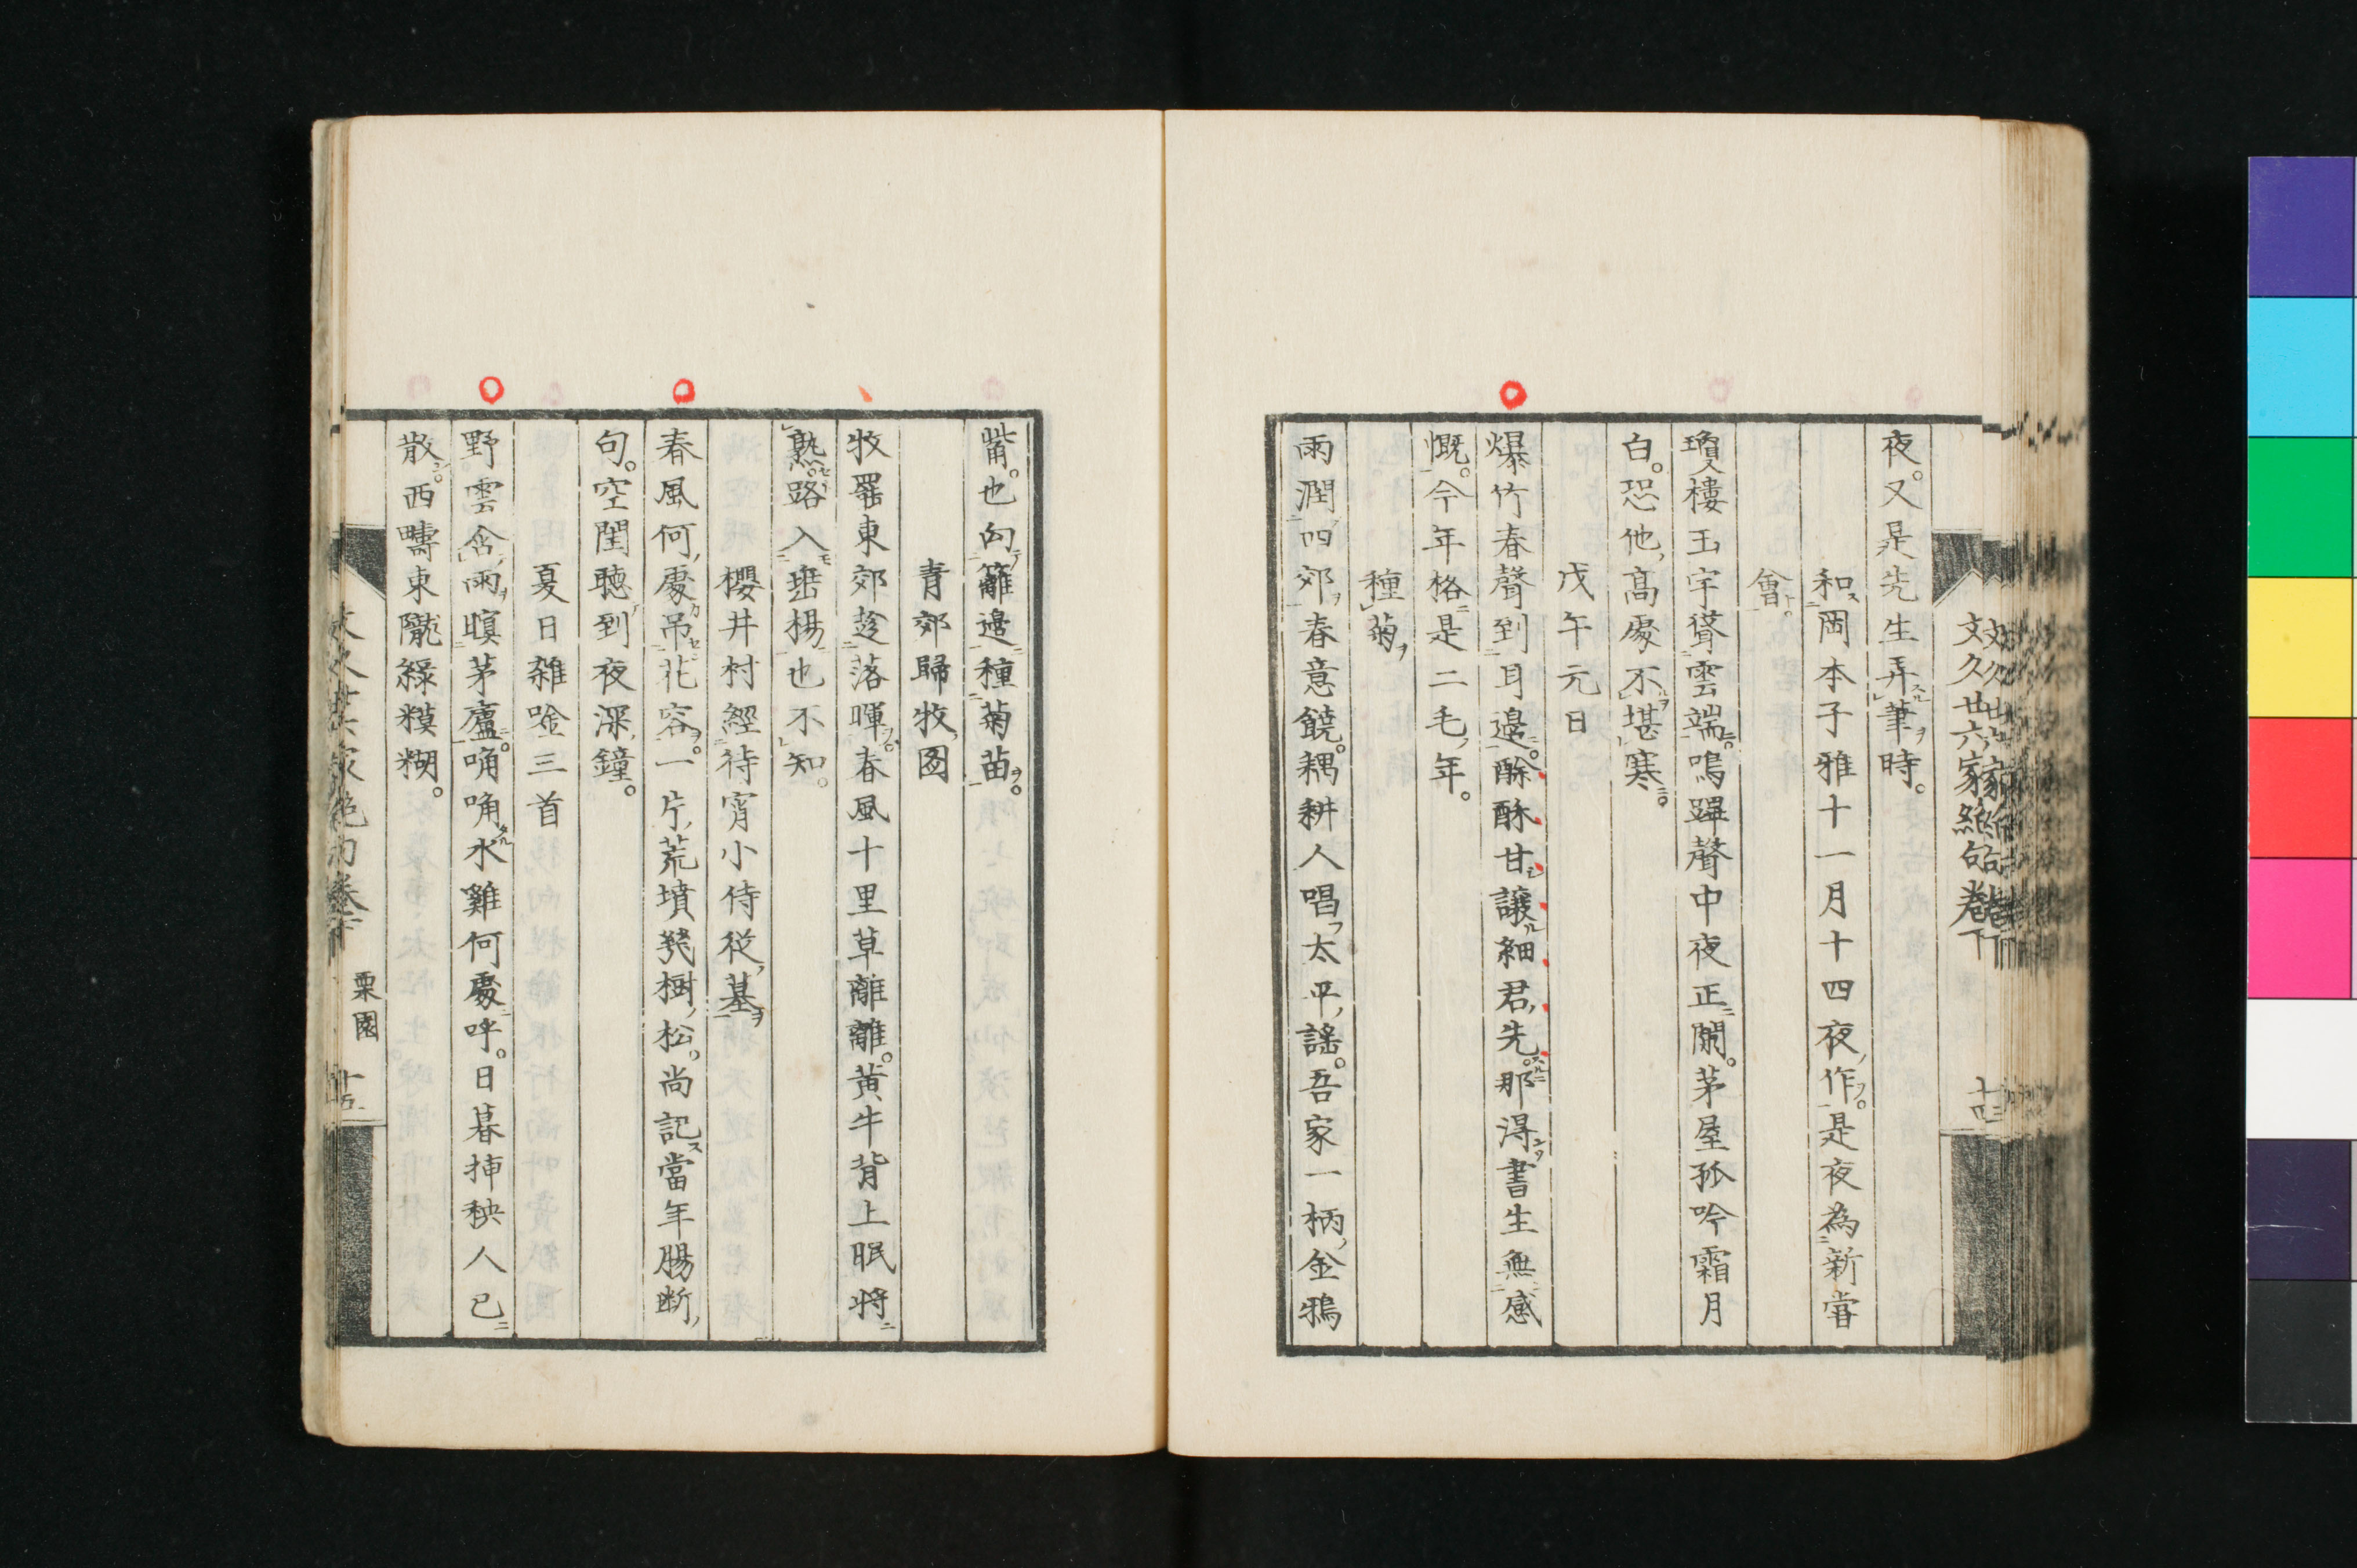 夜。又是先生弄筆時。
和岡本子雅十一月十四夜作。是夜為新嘗
會。
瓊樓玉宇聳雲端。鳴蹕聲中夜正闌。茅屋孤吟霜月
白。恐他高處不堪寒。
戊午元日
爆竹春聲到耳邊。酴酥甘讓細君先。那得書生無感
慨。今年格是二毛年。
種菊
雨潤四郊春意饒。耦耕人唱太平謠。吾家一柄金鴉
觜。也向籬邊種菊苗。
青郊歸牧図
牧罷東郊趁落暉。春風十里草離離。黄牛背上眠将
熟。路入垂楊也不知。
櫻井村經待宵小侍從墓
春風何處吊花容。一片荒墳幾樹松。尚記當年腸断
句。空閨聴到夜深鐘。
夏日雑唫三首
野雲含雨暝茅廬。喃喃水雞何處呼。日暮挿秧人已
散。西疇東隴緑糢糊。
文久廿六家絶句巻下
十四
栗園
十五